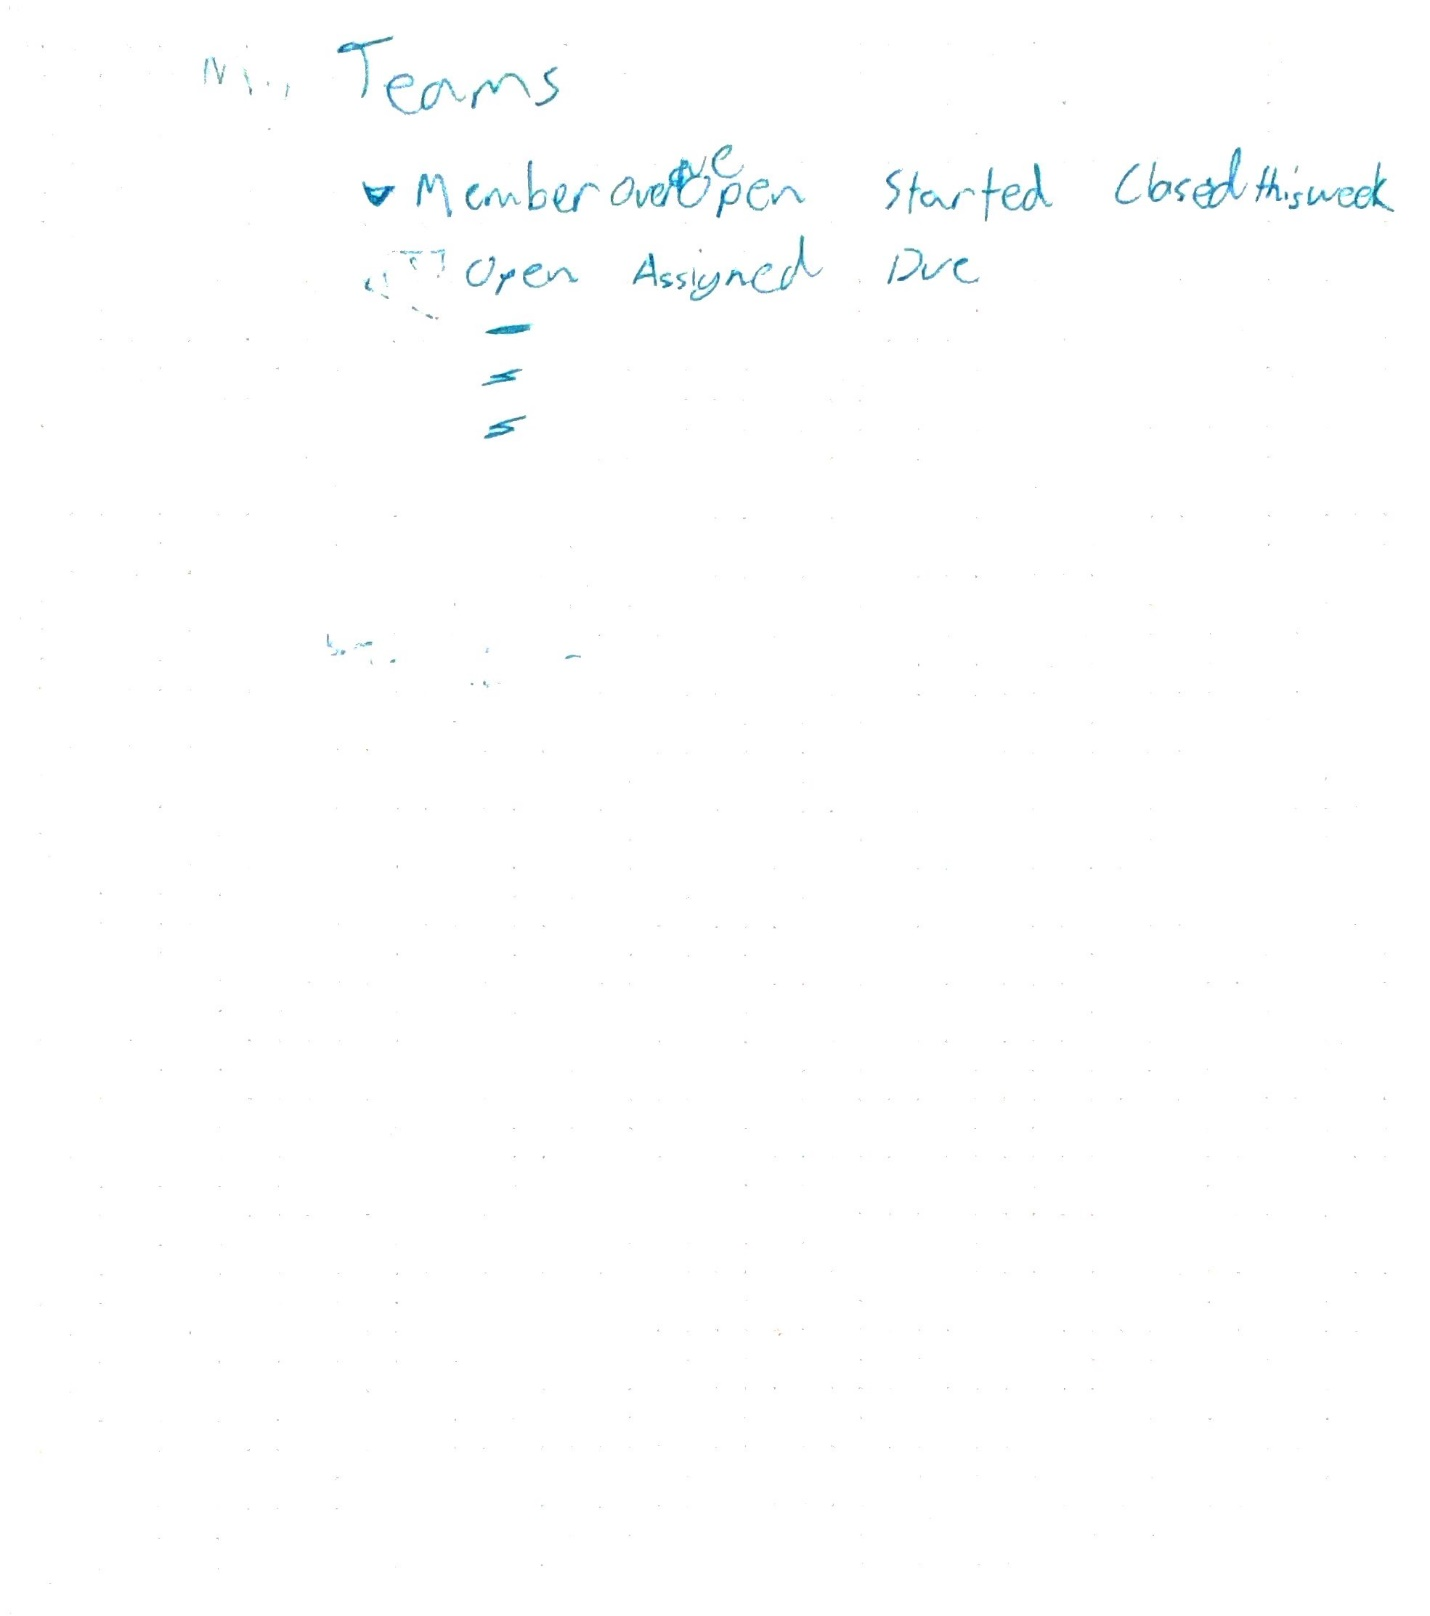 Teams
Member Overdue Open Started Closed this week
Open Assigned Due